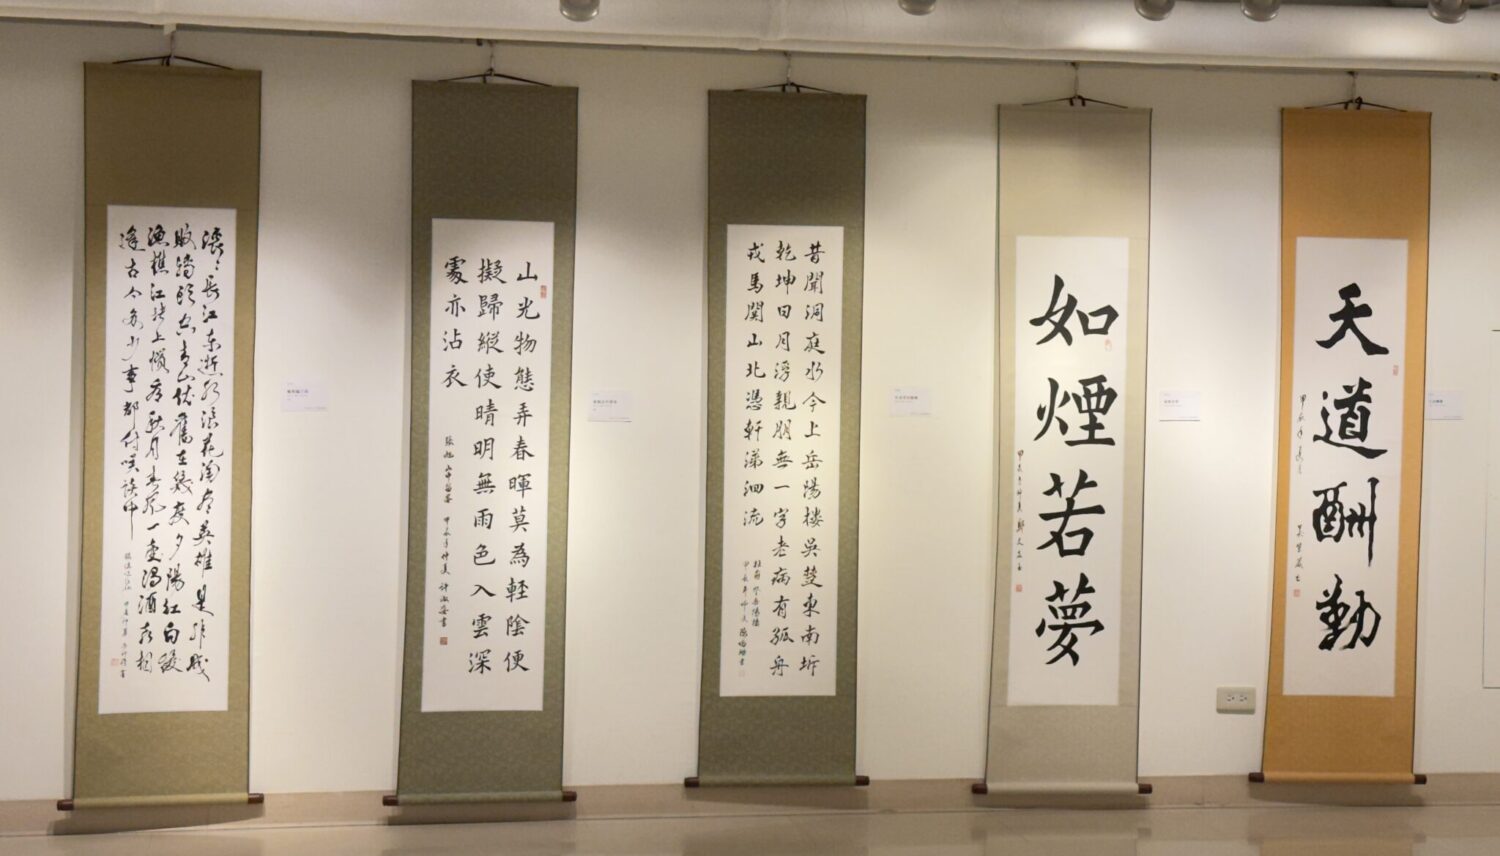 滾〻長江東逝水浪花淘盡英雄是非成
敗轉頭空青山依舊在幾度夕陽紅白髮
漁樵江渚上慣看秋月春風一壺濁酒喜相
逢古今多少事都付笑談中
山光物態弄春暉莫為輕陰便
擬歸縱使晴明無雨色入雲深
處亦沾衣
張旭山中留客 甲辰年仲夏 許淑姿書
昔聞洞庭水今上岳陽楼吳楚東南坼
乾坤日月浮親朋無一字老病有孤舟
戎馬関山北憑軒涕泗流
杜甫 登岳陽樓
甲辰年仲夏
如煙若夢
天道酬勤
甲辰年